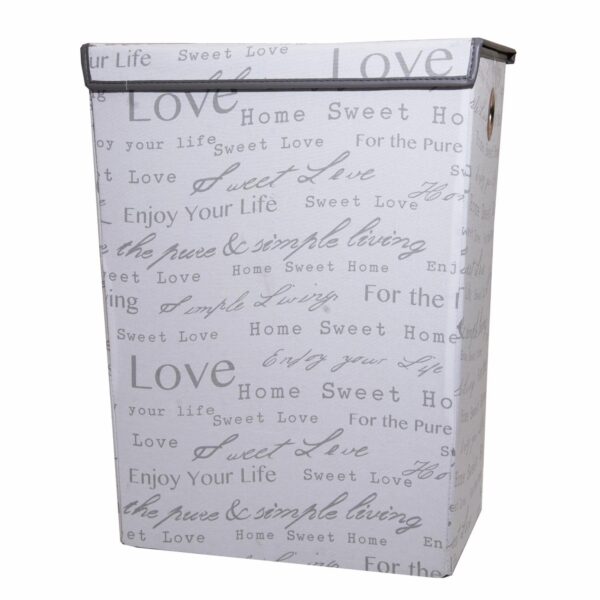 ur Life Sweet Love Love
Love Home Sweet Ho
oy your life Sweet Love For the Pure
t Love Sweet Love Ho
Enjoy Your Life Sweet Love
e the pure & simple living
weet Love Home Sweet Home Enj
ing Simple Living For the
Sweet Love Home Sweet Home
Love Enjoy your Life
Home Sweet Ho
your life Sweet Love For the Pure
Love Sweet Love Ho
Enjoy Your Life Sweet Love
the pure & simple living
et Love Home Sweet Home En
For the